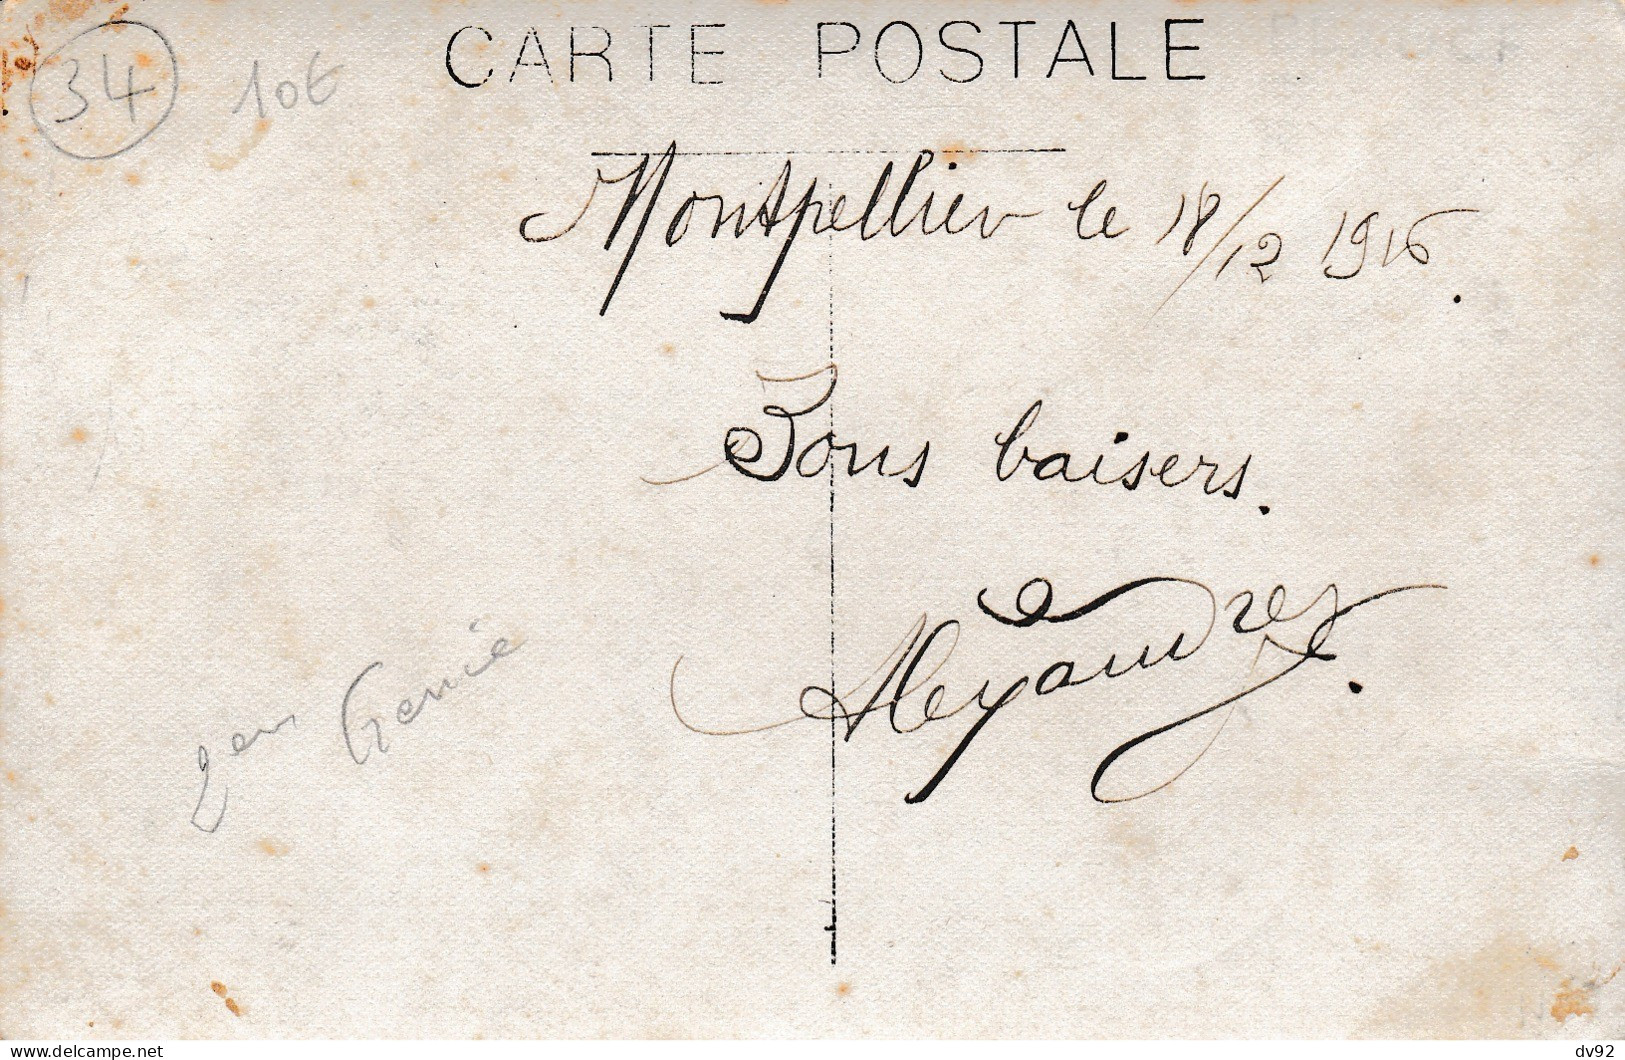 CARTE POSTALE
34
10€
Montpellier le 18/12 1916.
Bons baisers.
Alexandre
2em Genie
delcampe.net
dv92